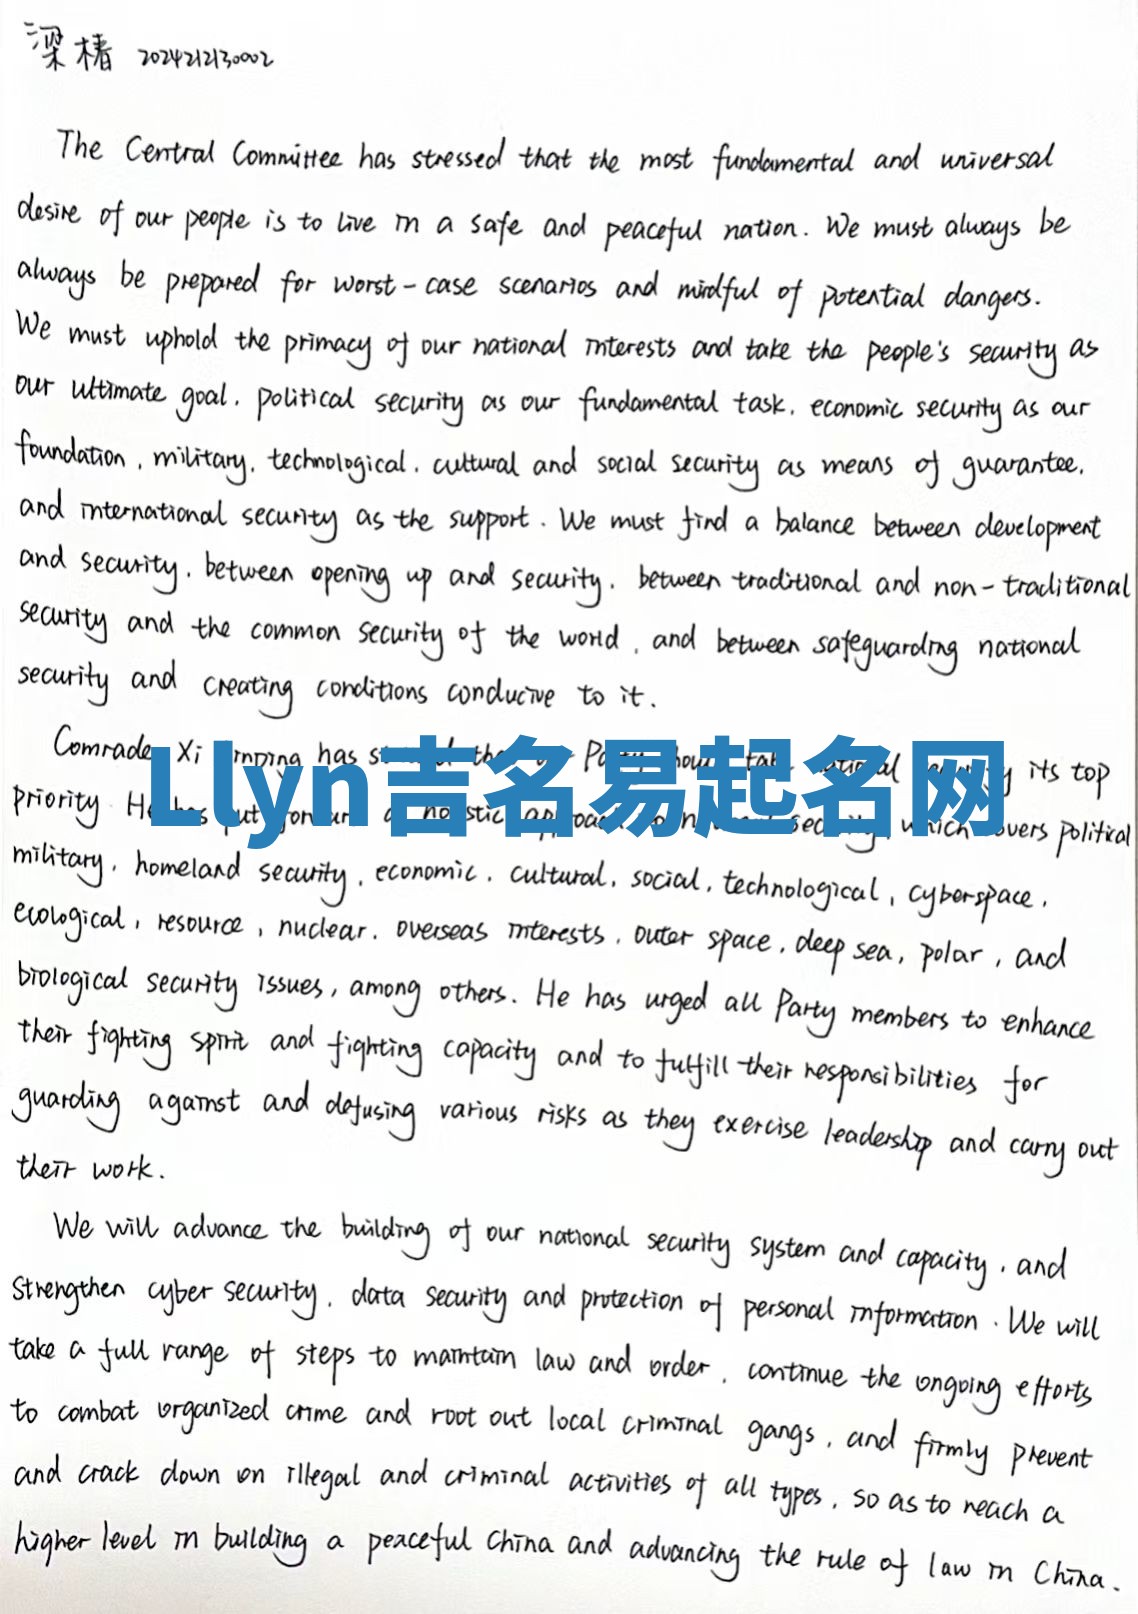 梁椿 2024212130002
The Central Committee has stressed that the most fundamental and universal
desire of our people is to live in a safe and peaceful nation. We must always be
always be prepared for worst-case scenarios and mindful of potential dangers.
We must uphold the primacy of our national interests and take the people's security as
our ultimate goal, political security as our fundamental task, economic security as our
foundation, military, technological, cultural and social security as means of guarantee,
and international security as the support. We must find a balance between development
and security, between opening up and security, between traditional and non-traditional
security and the common security of the world, and between safeguarding national
security and creating conditions conducive to it.
Comrade Xi Jinping has that Party its top
priority. He has put forward a holistic approach security, which covers political
Llyn吉名易起名网
military, homeland security, economic, cultural, social, technological, cyberspace,
ecological, resource, nuclear, overseas interests, outer space, deep sea, polar, and
biological security issues, among others. He has urged all Party members to enhance
their fighting spirit and fighting capacity and to fulfill their responsibilities for
guarding against and defusing various risks as they exercise leadership and carry out
their work.
We will advance the building of our national security system and capacity, and
strengthen cyber security, data security and protection of personal information. We will
take a full range of steps to maintain law and order, continue the ongoing efforts
to combat organized crime and root out local criminal gangs, and firmly prevent
and crack down on illegal and criminal activities of all types, so as to reach a
higher level in building a peaceful China and advancing the rule of law in China.